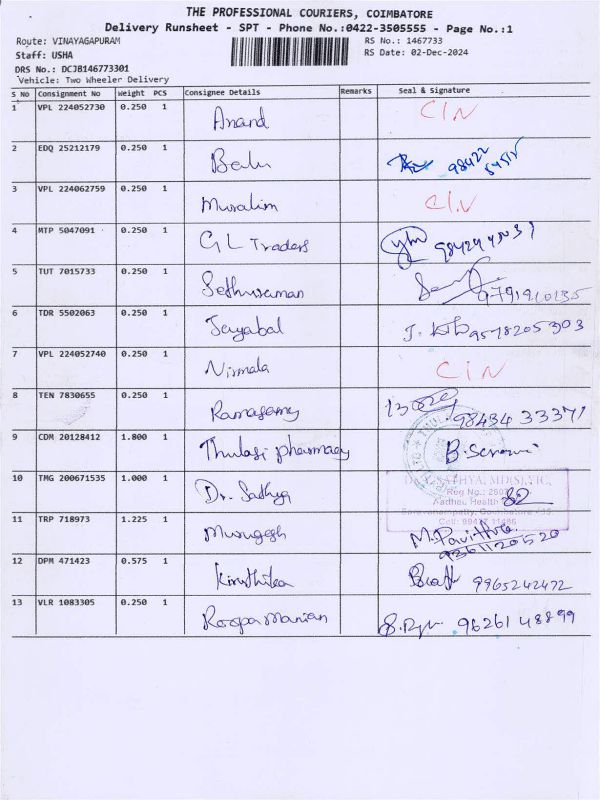 THE PROFESSIONAL COURIERS, COIMBATORE
Delivery Runsheet - SPT - Phone No.:0422-3505555 - Page No.:1
Route: VINAYAGAPURAM RS No.: 1467733
Staff: USHA RS Date: 02-Dec-2024
DRS No.: DCJB146773301
Vehicle: Two Wheeler Delivery
S No Consignment No Weight PCS Consignee Details Remarks Seal & Signature
1 VPL 224052730 0.250 1 Anand CIN
2 EDQ 25212179 0.250 1 Balu 98422
3 VPL 224062759 0.250 1 Muralim CIN
4 MTP 5047091 0.250 1 G L Traders
5 TUT 7015733 0.250 1 Sethuraman 9791910135
6 TDR 5502063 0.250 1 Jeyabal 9578205303
7 VPL 224052740 0.250 1 Nirmala CIN
8 TEN 7830655 0.250 1 Ramasamy 98434 33371
9 CDM 20128412 1.800 1 Thulasi pharmacy
10 TMG 200671535 1.000 1 Dr. Sathya
11 TRP 718973 1.225 1 Murugesh M. Pavithra
9361120520
12 DPM 471423 0.575 1 Kiruthika 9965242472
13 VLR 1083305 0.250 1 Roopa Manian 96261 48899